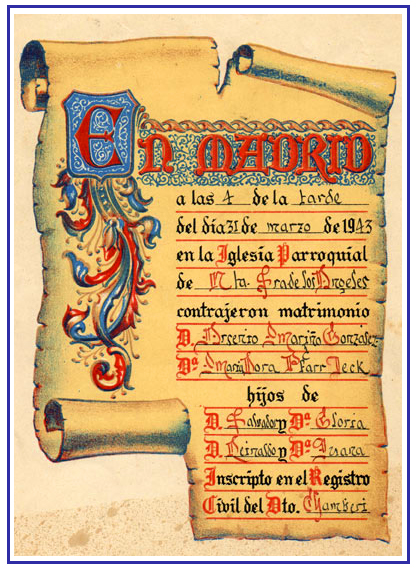 En MADRID
a las 4 de la tarde
del día 31 de marzo de 1943
en la Iglesia Parroquial
de Ntª. Sra de los Angeles
contrajeron matrimonio
D. Arsenio Mariño Gonzalez
Dª. Mary Dora Pfarr Jeck
hijos de
D. Salvador y Dª Gloria
D. Reinaldo y Dª Juana
Inscripto en el Registro
Civil del Dto. Chamberi